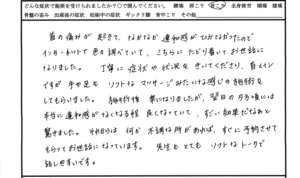 どんな症状で施術を受けられましたか？○で囲んでください。 腰痛 肩こり 首こり 全身疲労 頭痛 膝痛
骨盤の歪み 出産後の症状 妊娠中の症状 ギックリ腰 寝ちがえ その他
首の痛みが起きて、なかなか違和感がひかなかったので
インターネットで色々調べていて、こちらにたどり着いてお世話に
なりました。丁寧に症状や状況をきいてくださり、首メイン
ですが手や足もソフトなマッサージみたいな感じの施術を
してもらいました。施術後楽になりましたが、翌日の夕方頃には
本当に違和感がなくなる程良くなっていて、すごい効果だなぁと
驚きました。それからは何か不調な所があれば、すぐに予約させて
もらってお世話になっています。先生もとてもソフトなトークで
話しやすいです。